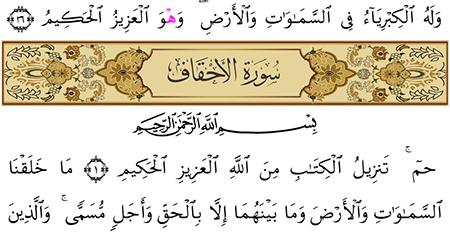 وَلَهُ الْكِبْرِيَآءُ فِي السَّمَاوَاتِ وَالْأَرْضِ ۖ وَهْوَ الْعَزِيزُ الْحَكِيمُ ﴿٣٦﴾
سُورَةُ الْأَحْقَافِ
بِسْمِ اللَّهِ الرَّحْمَٰنِ الرَّحِيمِ
حمٓ ۚ تَنزِيلُ الْكِتَابِ مِنَ اللَّهِ الْعَزِيزِ الْحَكِيمِ ﴿١﴾ مَا خَلَقْنَا
السَّمَاوَاتِ وَالْأَرْضَ وَمَا بَيْنَهُمَا إِلَّا بِالْحَقِّ وَأَجَلٍ مُّسَمًّى ۚ وَالَّذِينَ